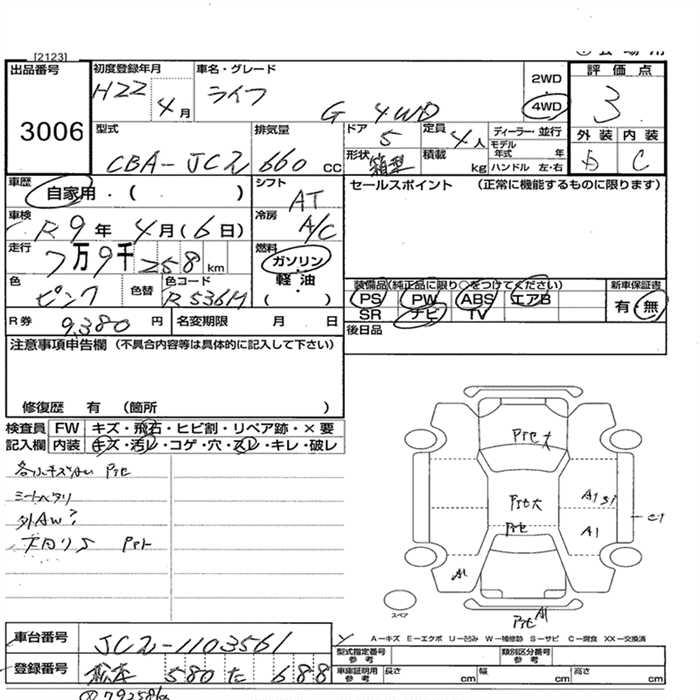 [2123]
出品番号 3006
初度登録年月 H22年 4月
車名・グレード ライフ G 4WD
2WD
4WD
評価点 3
外装 内装
C
型式 CBA-JC2
排気量 660 cc
ドア 5
形状 箱型
定員 4人
積載 kg
ディーラー・並行
モデル年式 年
ハンドル 左・右
車歴 自家用・( )
シフト AT
セールスポイント (正常に機能するものに限ります)
車検 R9年 4月(6日)
冷房 A/C
走行 7万9千258km
燃料 ガソリン・軽油 ( )
色 ピンク
色替
色コード R536M
装備品(純正品に限り○をつけてください)
PS PW ABS エアB
SR ナビ TV
新車保証書 有・無
R券 9,380円
名変期限 月 日
後日品
注意事項申告欄 (不具合内容等は具体的に記入して下さい)
修復歴 有 (箇所 )
検査員記入欄
FW キズ・飛石・ヒビ割・リペア跡・×要
内装 キズ・汚レ・コゲ・穴・スレ・キレ・破レ
シートヘタリ
外AW?
Pte大
Pte大
Pte
A1
A1
A1
スペア
A-キズ E-エクボ U-凹み W-補修跡 S-サビ C-腐食 XX-交換済
車台番号 JC2-1103561
登録番号 松本 580 た 688
型式指定番号 参考
類別区分番号 参考
車庫証明用 参考 長さ cm 幅 cm 高さ cm